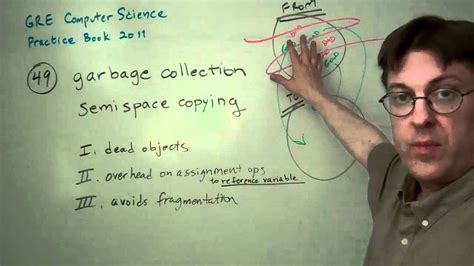 GRE Computer Science
Practice Book 2011
FROM
BAD
BAD
49 garbage collection
semispace copying
TO
I. dead objects
II. overhead on assignment ops
to reference variable
III. avoids fragmentation